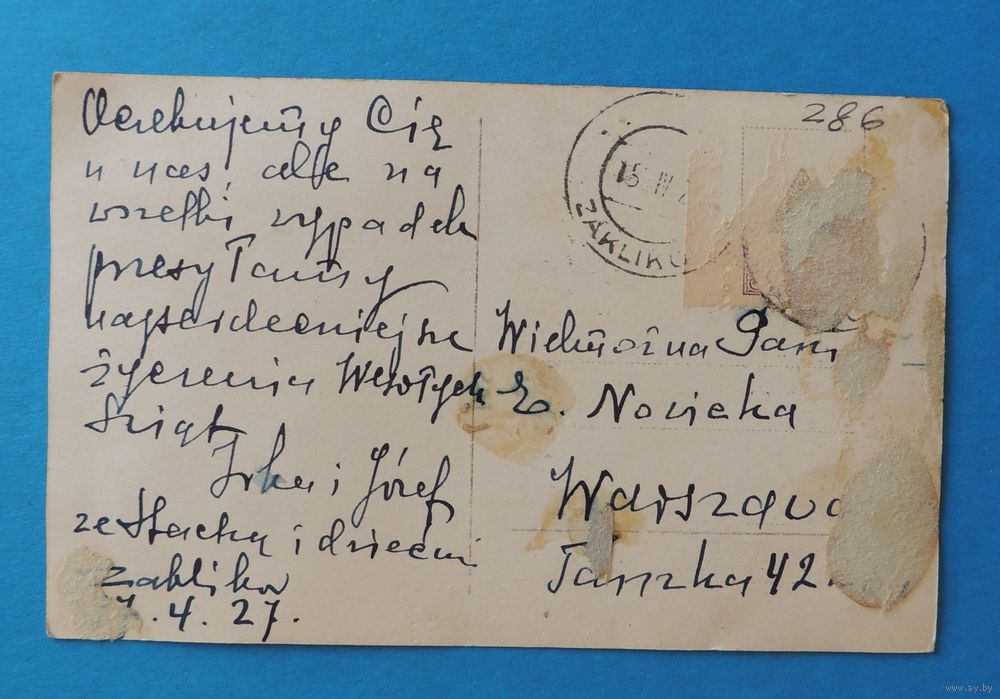 Oczekujemy Cię
u nas ale na
wszelki wypadek
przesyłamy
najserdeczniejsze
życzenia Wesołych
Świąt
Irka i Józef
ze Stachą i dziećmi
Zaklików
.4.27.
286
15 IV
ZAKLIKÓ
Wielmożna Pani
E. Nowicka
Warszawa
Tamka 42
www.ay.by